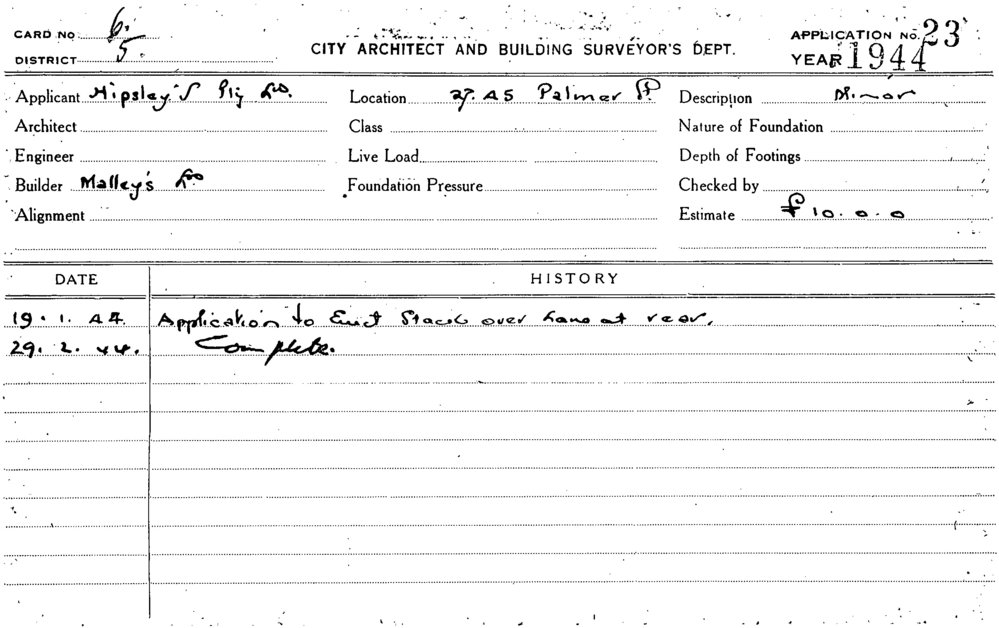 CARD NO 6.
DISTRICT 5.
CITY ARCHITECT AND BUILDING SURVEYOR'S DEPT.
APPLICATION NO. 23
YEAR 1944
Applicant Hipsley's Pty Ltd. Location Palmer St. Description Minor
Architect Class Nature of Foundation
Engineer Live Load Depth of Footings
Builder Malley's Ltd Foundation Pressure Checked by
Alignment Estimate £10.0.0
DATE HISTORY
19.1.44. Application to Erect Stack over Lane at rear.
29.2.44. Complete.